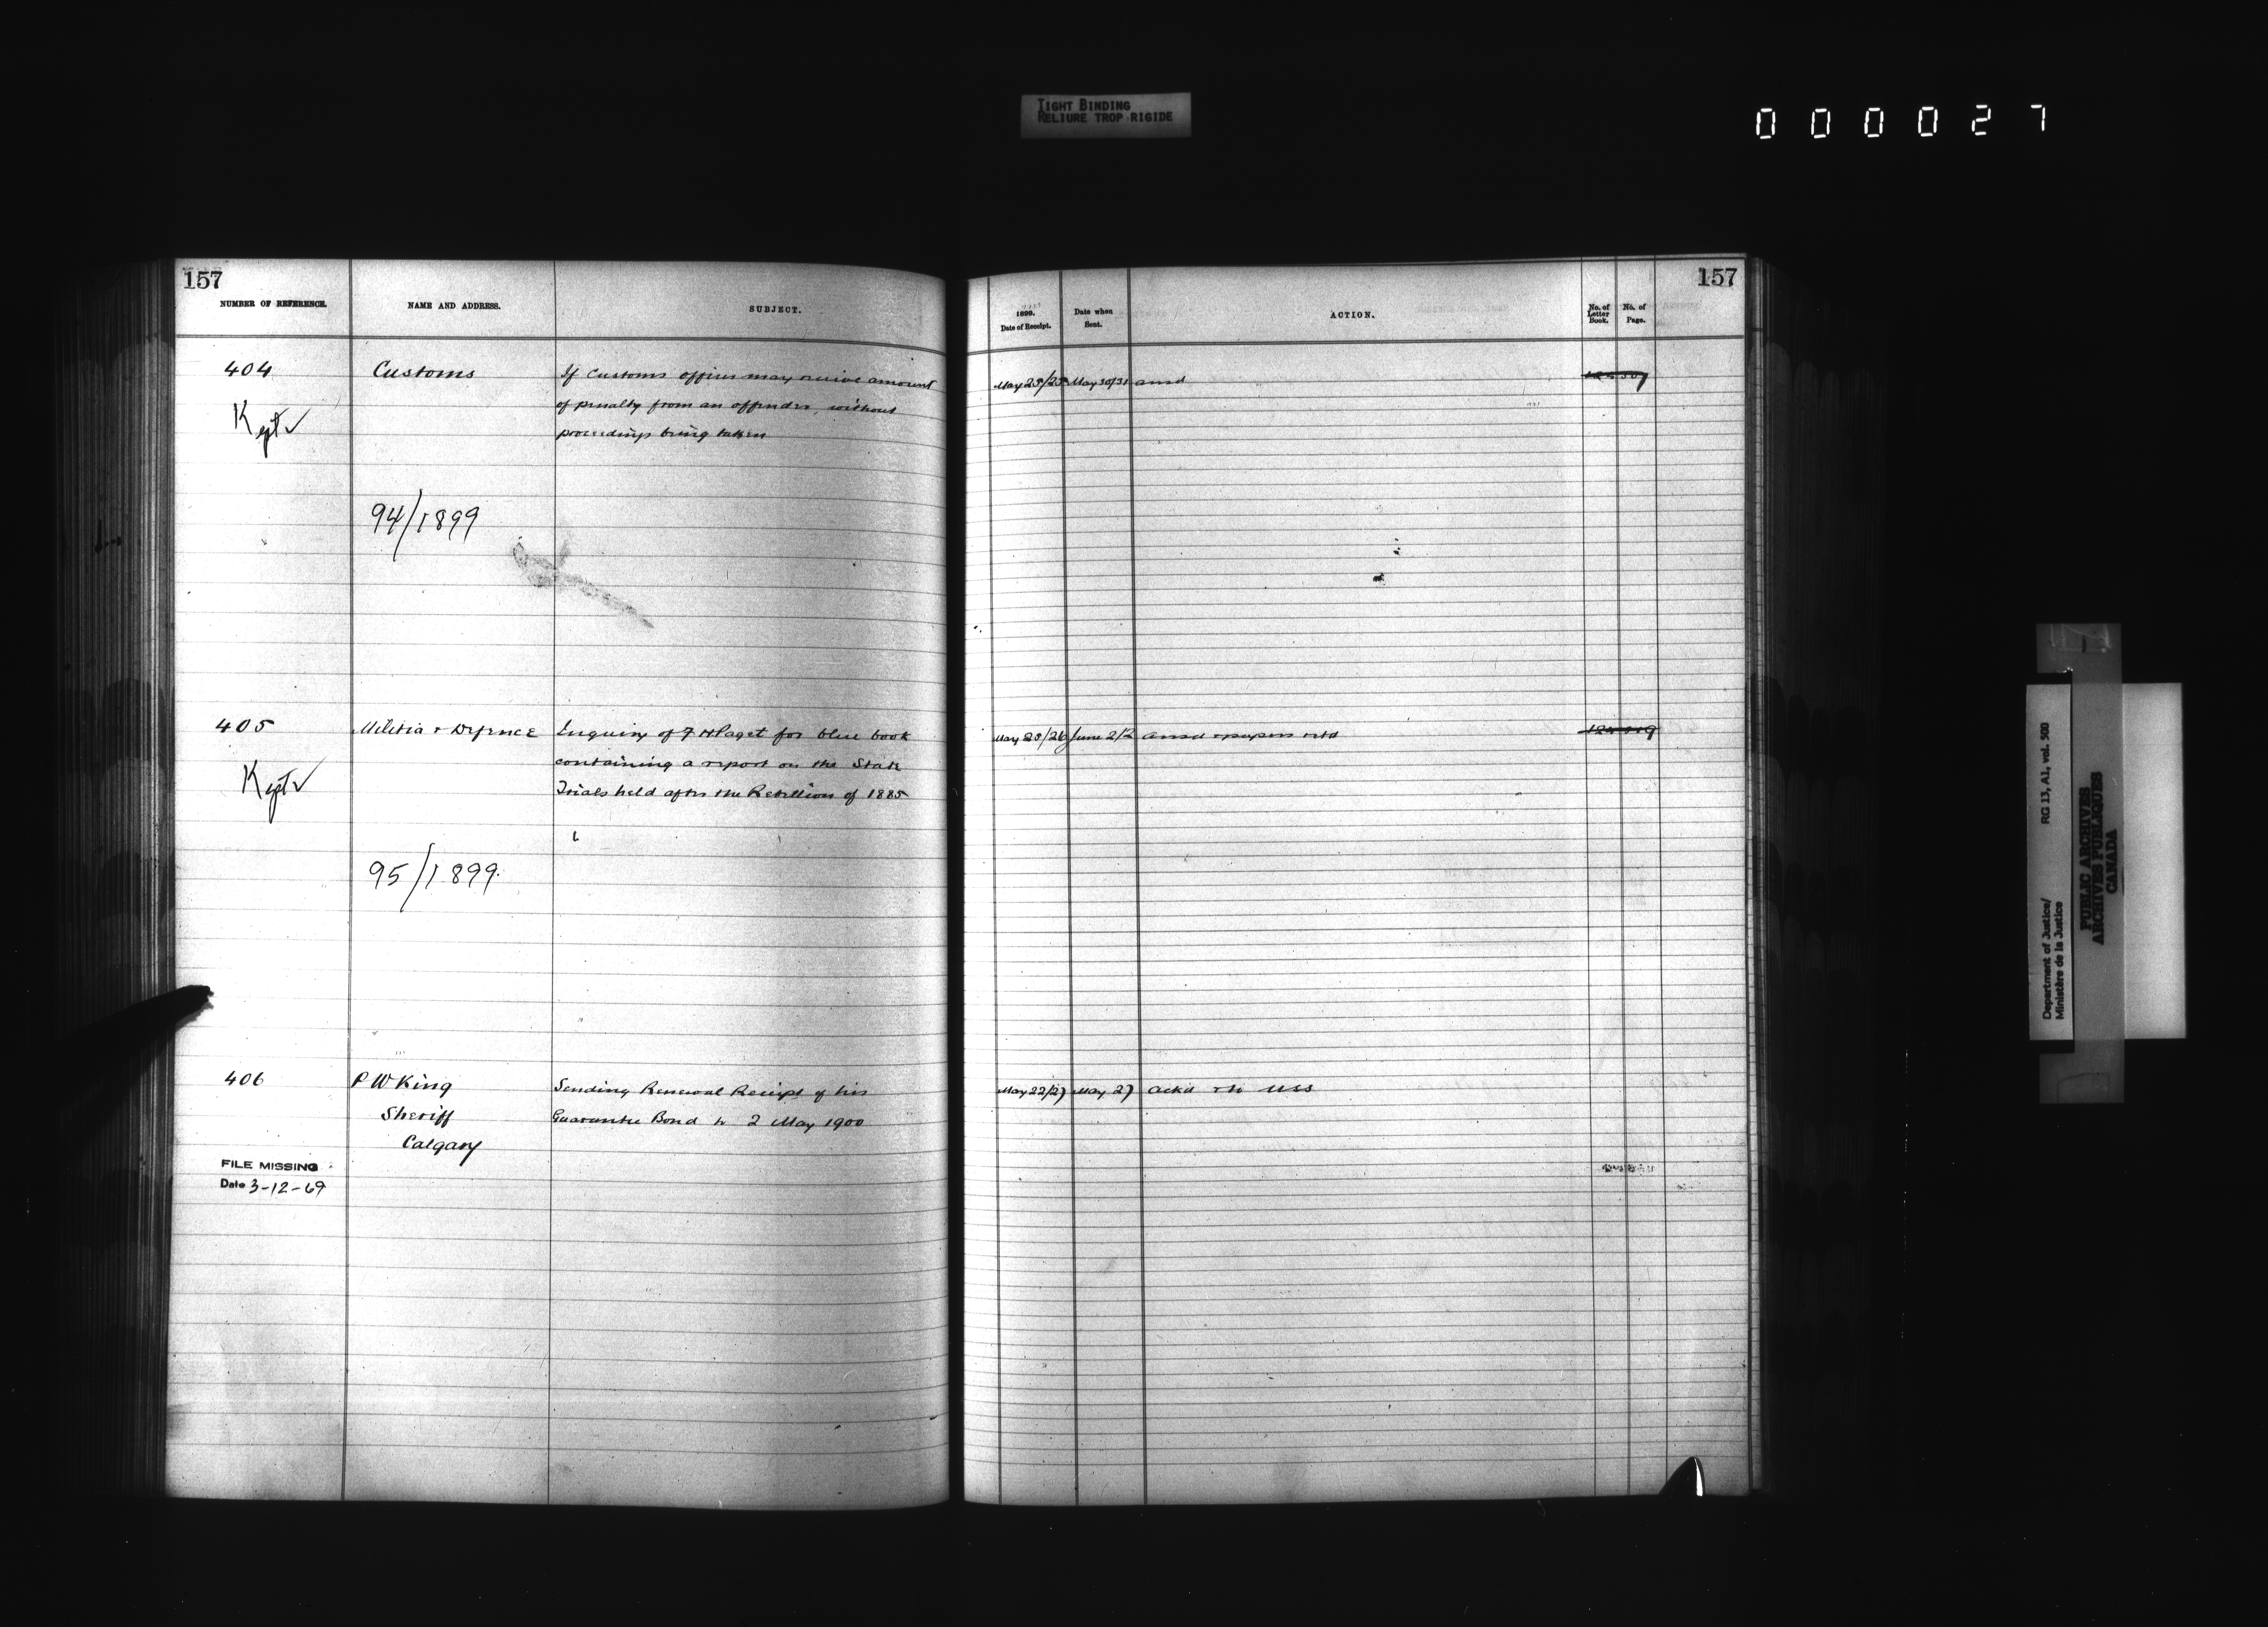 TIGHT BINDING
RELIURE TROP RIGIDE
000027
157
NUMBER OF REFERENCE.
NAME AND ADDRESS.
SUBJECT.
404
Customs
If Customs officers may receive amount
of penalty from an offender, without
proceedings being taken
Kept ✓
94/1899
405
Militia & Defence
Enquiry of F H Paget for blue book
containing a report on the State
Trials held after the Rebellion of 1885
Kept ✓
95/1899.
406
P W King
Sheriff
Calgary
Sending Renewal Receipt of his
Guarantee Bond to 2 May 1900
FILE MISSING
Date 3-12-69
157
1899.
Date of Receipt.
Date when
Sent.
ACTION.
No. of
Letter
Book.
No. of
Page.
May 25/25 May 30/31 ansd
May 25/26 June 2/2 ansd & papers retd
May 22/27 May 27 ackd & to USS
Department of Justice/
Ministère de la Justice
RG 13, A1, vol. 500
PUBLIC ARCHIVES
ARCHIVES PUBLIQUES
CANADA